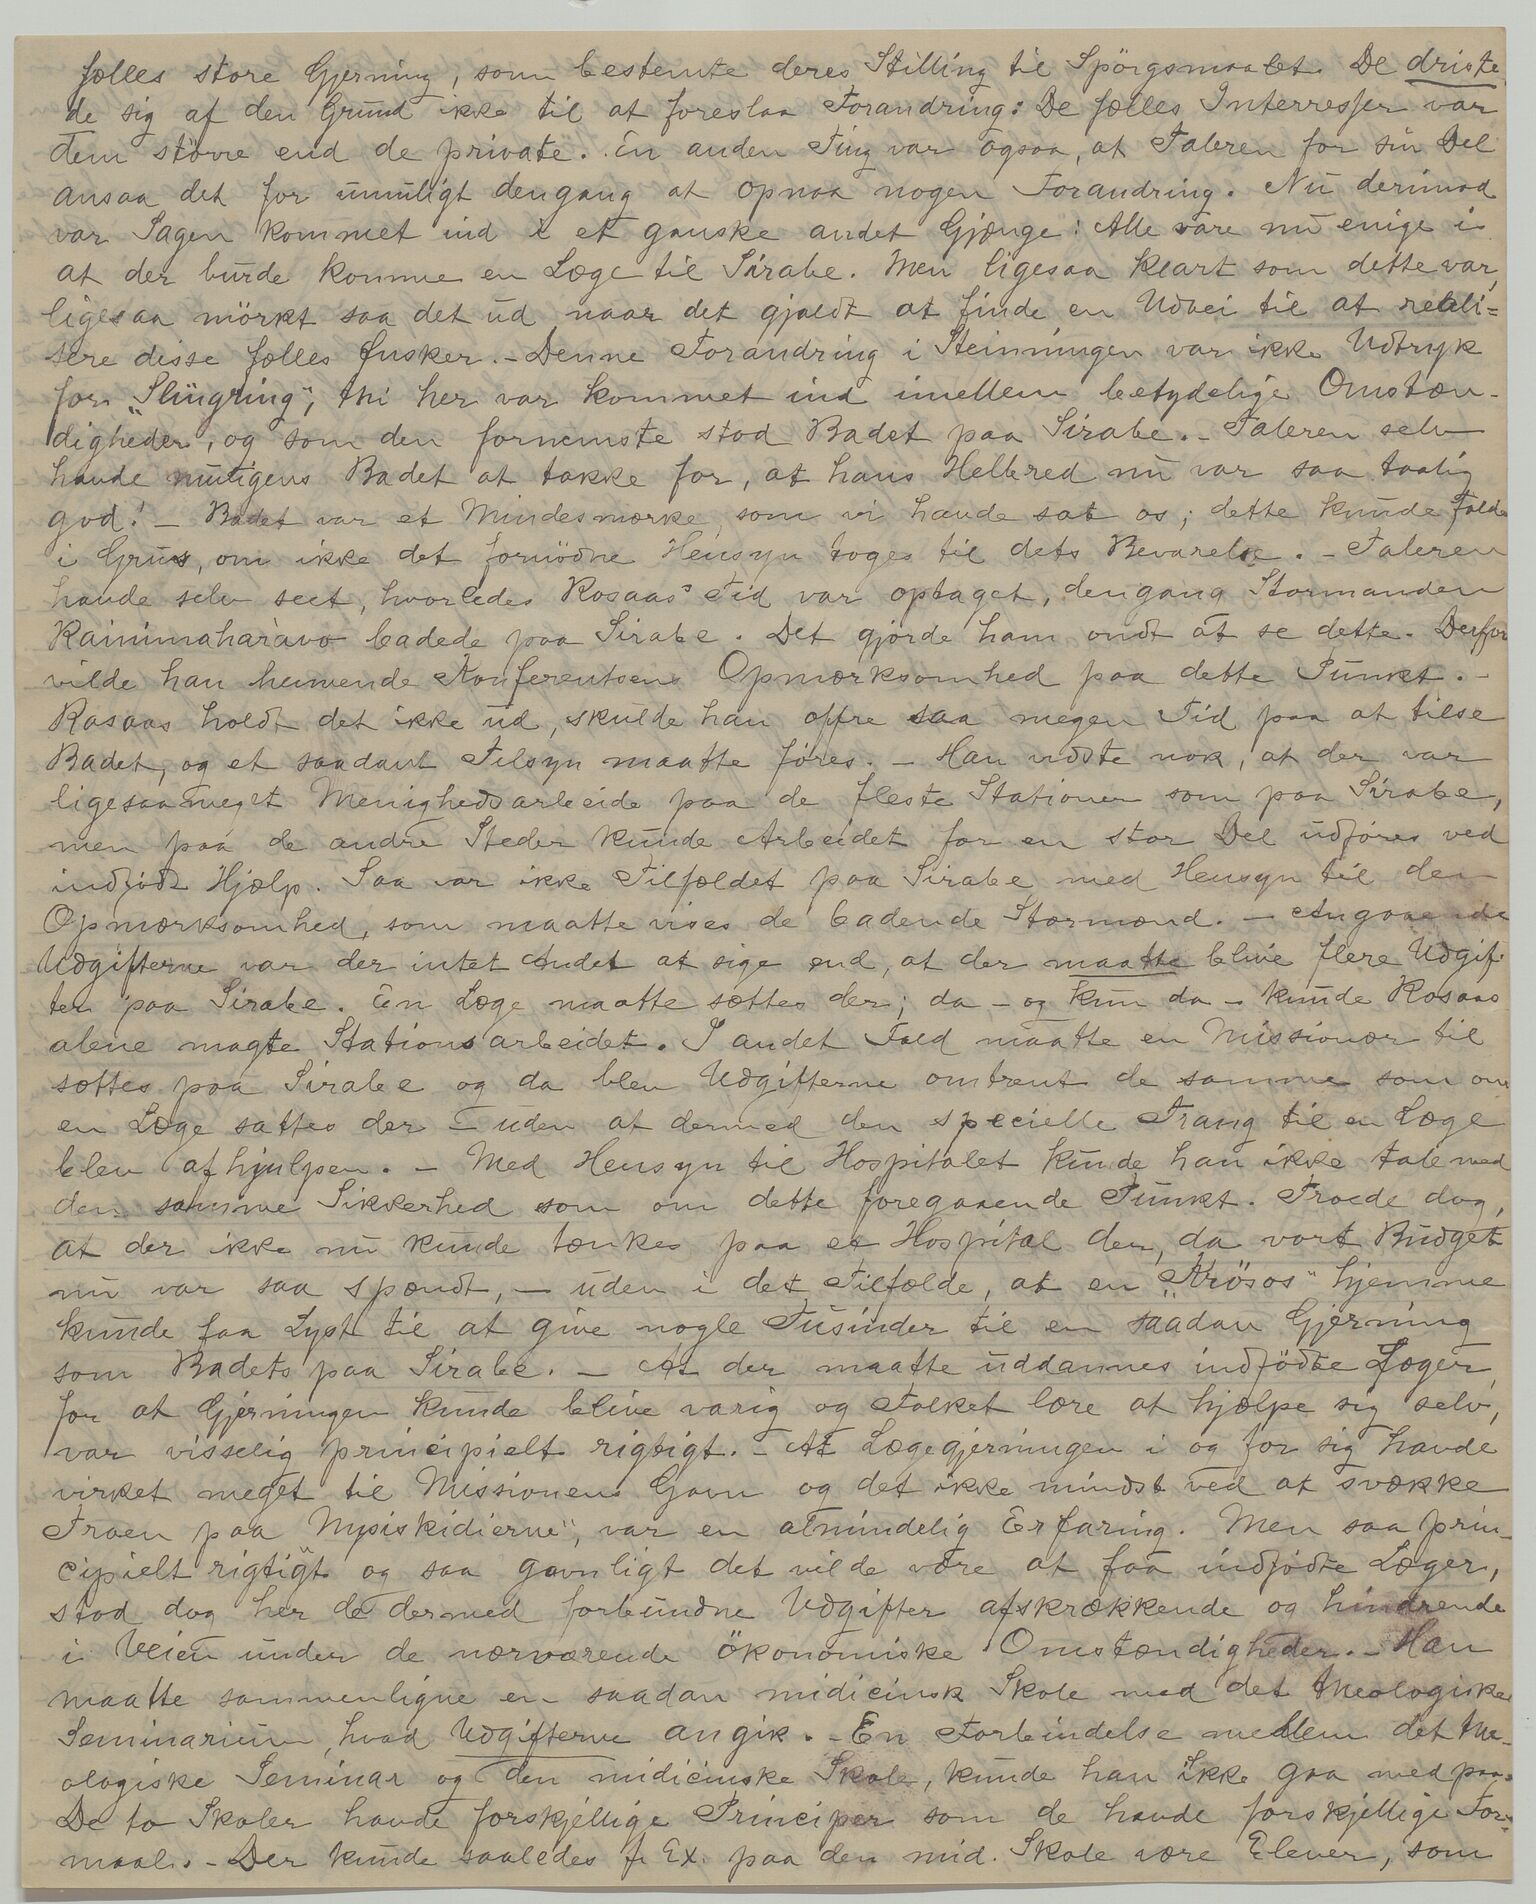 fælles store Gjerning, som bestemte deres Stilling til Spörgsmaalet. De driste
de sig af den Grund ikke til at foreslaa Forandring: De fælles Interresser var
dem större end de private. En anden Ting var ogsaa, at Taleren for sin Del
ansaa det for umuligt dengang at opnaa nogen Forandring. Nu derimod
var Sagen kommet ind i et ganske andet Gjænge: Alle vare nu enige i
at der burde komme en Læge til Sirabe. Men ligesaa klart som dette var,
ligesaa mörkt saa det ud naar det gjaldt at finde en Udvei til at reali=
sere disse fælles Ønsker. – Denne Forandring i Stemningen var ikke Udtryk
for "Slingring", thi her var kommet ind imellem betydelige Omstæn-
digheder, og som den fornemste stod Badet paa Sirabe. – Taleren selv
havde nutigens Badet at takke for, at hans Helbred nu var saa taalig
god! – Badet var et Mindesmærke, som vi havde sat os; dette kunde falde
i Grus, om ikke det fornödne Hensyn toges til dets Bevarelse. – Taleren
havde selv seet, hvorledes Rosaas' Tid var optaget, dengang Stormanden
Rainimaharavo badede paa Sirabe. Det gjorde ham ondt at se dette. Derfor
vilde han henvende Konferentsens Opmærksomhed paa dette Punkt. –
Rosaas holdt det ikke ud, skulde han offre saa megen Tid paa at tilse
Badet, og et saadant Tilsyn maatte föres. – Han vidste nok, at der var
ligesaameget Menighedsarbeide paa de fleste Stationer som paa Sirabe,
men paa de andre Steder kunde Arbeidet for en stor Del udföres ved
indfödt Hjælp. Saa var ikke Tilfældet paa Sirabe med Hensyn til den
Opmærksomhed, som maatte vises de badende Stormænd. – Angaaende
Udgifterne var der intet Andet at sige end, at der maatte blive flere Udgif-
ter paa Sirabe. En Læge maatte sættes der; da – og kun da – kunde Rosaas
alene magte Stationsarbeidet. I andet Fald maatte en Missionær til
sættes paa Sirabe og da blev Udgifterne omtrent de samme som om
en Læge sattes der – uden at dermed den specielle Trang til en Læge
blev afhjulpen. – Med Hensyn til Hospitalet kunde han ikke tale med
den samme Sikkerhed som om dette foregaaende Punkt. Troede dog,
at der ikke nu kunde tænkes paa et Hospital der, da vort Budget
nu var saa spændt, – uden i det Tilfælde, at en "Krösos" hjemme
kunde faa Lyst til at give nogle Tusinder til en saadan Gjerning
som Badets paa Sirabe. – At der maatte uddannes indfödte Læger,
for at Gjerningen kunde blive varig og Folket lære at hjælpe sig selv,
var visselig principielt rigtigt. – At Lægegjerningen i og for sig havde
virket meget til Missionens Gavn og det ikke mindst ved at svække
Troen paa "Mpisikidierne", var en almindelig Erfaring. Men saa prin-
cipielt rigtigt og saa gavnligt det vilde være at faa indfödte Læger,
stod dog her de dermed forbundne Udgifter afskrækkende og hindrende
i Veien under de nærværende ökonomiske Omstændigheder. – Han
maatte sammenligne en saadan midicinsk Skole med det theologiske
Seminarium, hvad Udgifterne angik. – En Forbindelse mellem det the-
ologiske Seminar og den midicinske Skole, kunde han ikke gaa med paa.
De to Skoler havde forskjellige Principer som de havde forskjellige For-
maal. – Der kunde saaledes f. Ex. paa den mid. Skole være Elever, som